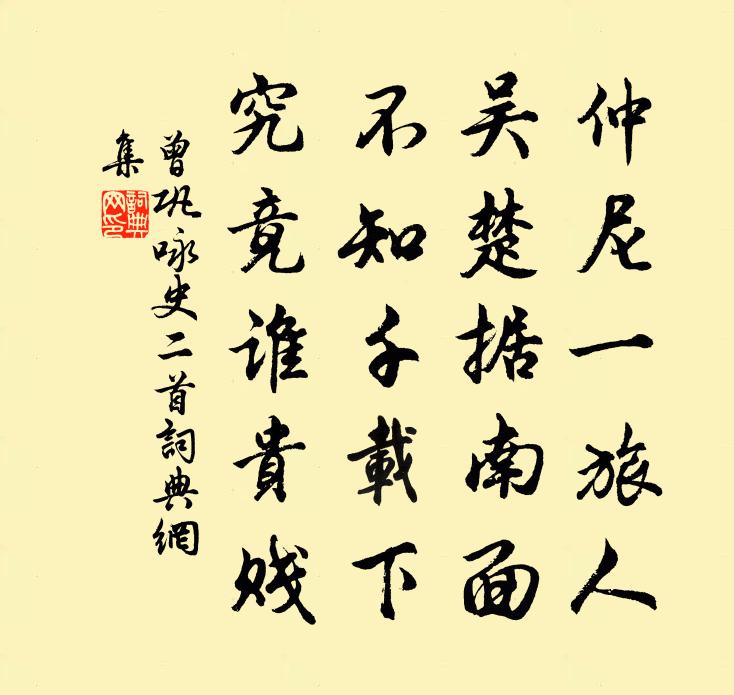 仲尼一旅人
吴楚据南面
不知千載下
究竟谁貴贱
曾巩咏史二首詞典網
集
詞典網印